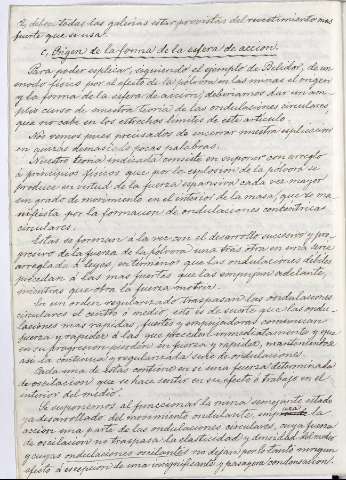 y deben todas las galerias estar provistas del revestimiento mas
fuerte que se usa.
c, Origen de la forma de la esfera de accion.
Para poder esplicar, siguiendo el ejemplo de Belidor, de un
modo fisico por el efecto de la pólvora en las minas el origen
y la forma de la esfera de accion, deberiamos dar un am-
plio curso de nuestra teoria de las ondulaciones circulares,
que no cabe en los estrechos limites de este articulo.
Nos vemos pues precisados de encerrar nuestra esplicacion
en quizas demasiado pocas palabras.
Nuestra teoria indicada consiste en suponer con arreglo
á principios fisicos que por la esplosion de la pólvora se
produce en virtud de la fuerza espansiva cada vez mayor
un grado de movimiento en el interior de la masa, que se ma-
nifiesta por la formacion de ondulaciones concentricas
circulares.
Estas se forman á la vez con el desarrollo sucesivo y pro-
gresivo de la fuerza de la pólvora una tras otra en una serie
arreglada á leyes, en términos que las ondulaciones debiles
precedan á las mas fuertes que las empujan adelante,
mientras que obra la fuerza motriz.
En un orden regularizado traspasan las ondulaciones
circulares el centro ó medio, esto es de suerte que las ondu-
laciones mas rapidas, fuertes y empujadoras comunican
fuerza y rapidez á las que preceden inmediatamente y que
en su progresion pierden en fuerza y rapidez, manteniendose
asi la continua y regularizada serie de ondulaciones.
Cada una de estas contiene en se una fuerza determinada
de oscilacion que se hace sentir en su efecto ó trabajo en el
interior del medio.
Si suponemos al funccionar la mina semejante estado
ya desarrollado del movimiento ondulante, la
accion una parte de las ondulaciones circulares, cuya fuerza
de oscilacion no traspasa la elasticidad y densidad del medio
y cuyas ondulaciones oscilantes no dejan por lo tanto ningun
efecto á escepcion de una insignificante y pasagera condensacion.